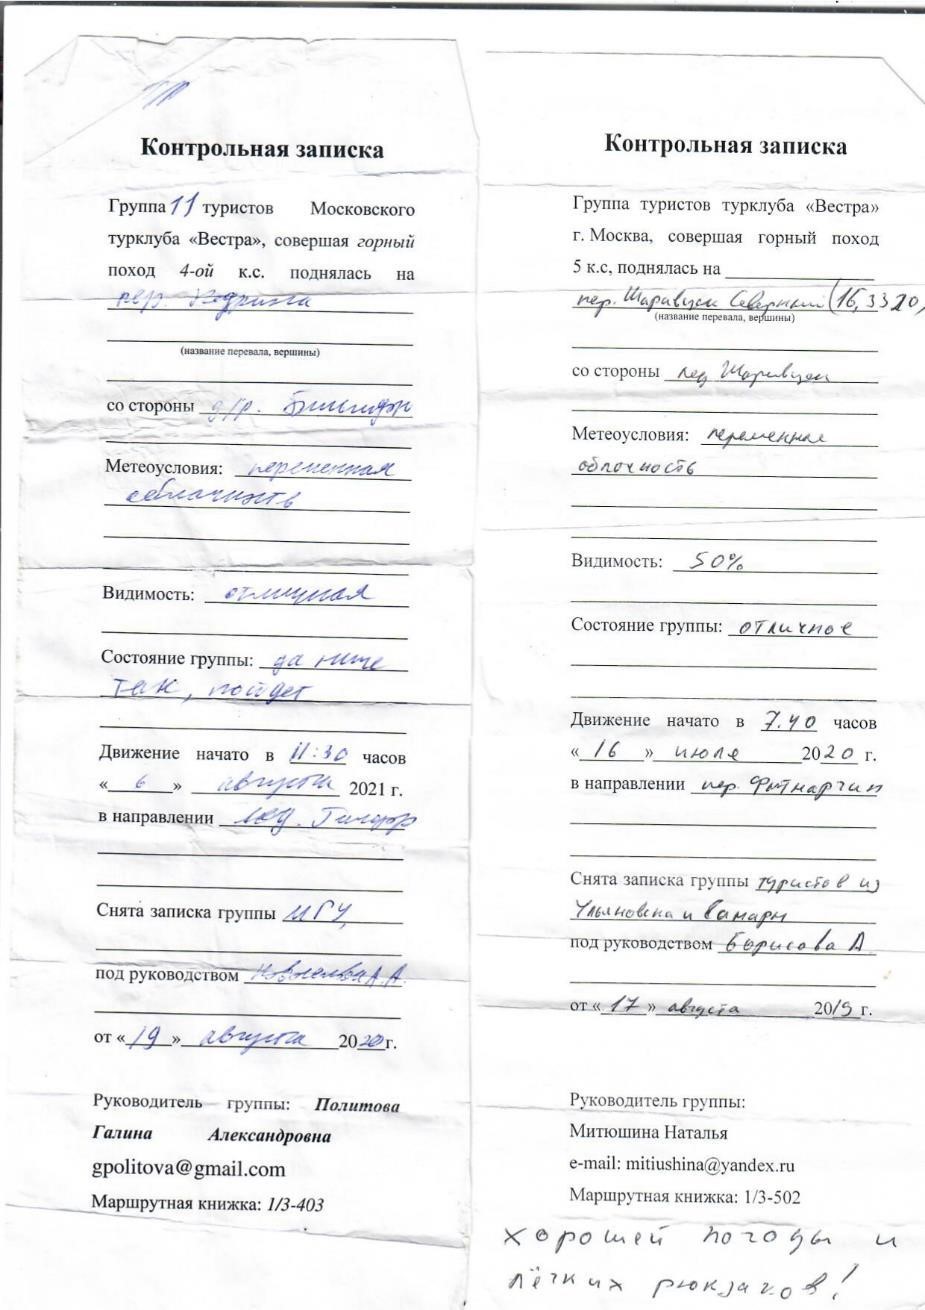 Контрольная записка
Группа 11 туристов Московского
турклуба «Вестра», совершая горный
поход 4-ой к.с. поднялась на
пер.
(название перевала, вершины)
со стороны
Метеоусловия: переменная
облачность
Видимость: отличная
Состояние группы: да
так, пойдет
Движение начато в 11:30 часов
«6» августа 2021 г.
в направлении лед.
Снята записка группы МГУ
под руководством А.А.
от «19» августа 2020 г.
Руководитель группы: Политова
Галина Александровна
gpolitova@gmail.com
Маршрутная книжка: 1/3-403
Контрольная записка
Группа туристов турклуба «Вестра»
г. Москва, совершая горный поход
5 к.с, поднялась на
пер. Шаривцек Северный (1Б, 3320)
(название перевала, вершины)
со стороны лед Шаривцек
Метеоусловия: переменная
облачность
Видимость: 50%
Состояние группы: отличное
Движение начато в 7.40 часов
«16» июля 2020 г.
в направлении пер. Фытнаргин
Снята записка группы туристов из
Ульяновска и Самары
под руководством Борисова А.
от «17» августа 2019 г.
Руководитель группы:
Митюшина Наталья
e-mail: mitiushina@yandex.ru
Маршрутная книжка: 1/3-502
хорошей погоды и
лёгких рюкзаков!